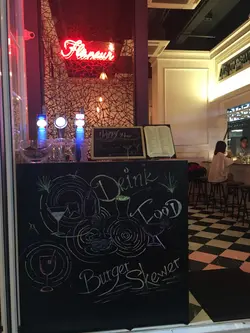 Flaneur
Happy Hour
Drink
FOOD
Burger
Skewer